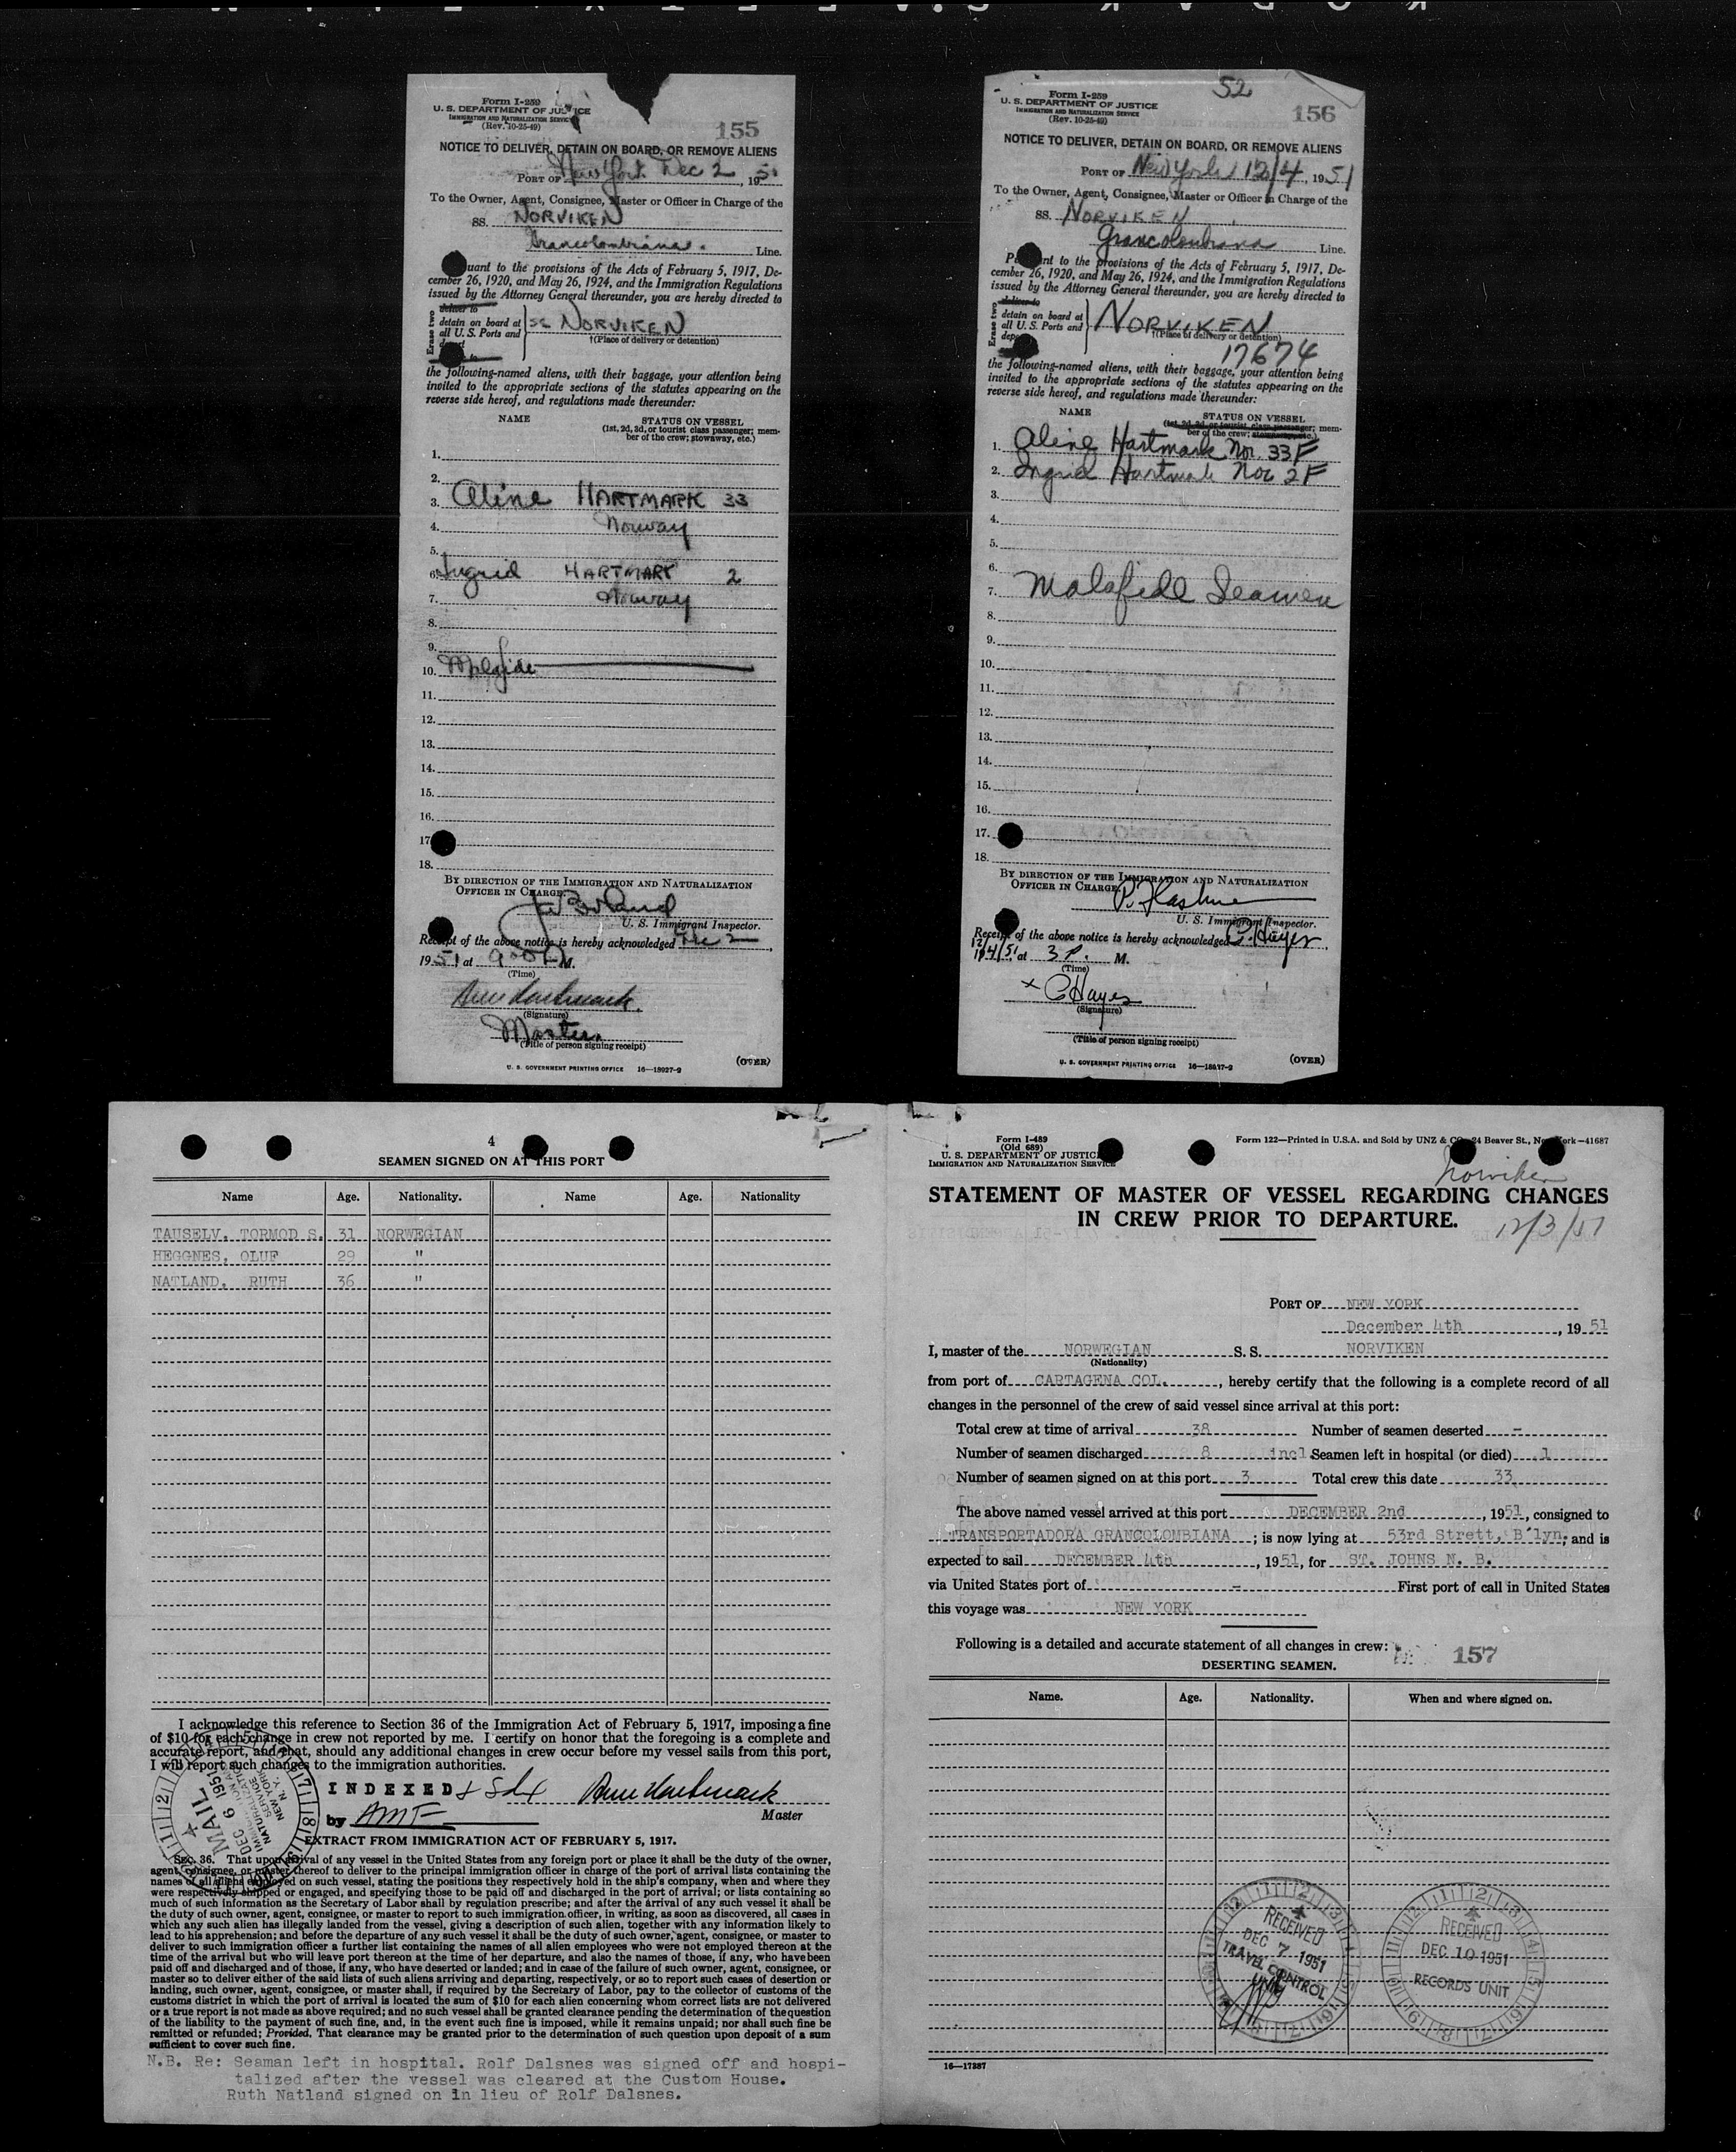 Form I-259
U. S. DEPARTMENT OF JUSTICE
IMMIGRATION AND NATURALIZATION SERVICE
(Rev. 10-25-49)
155
NOTICE TO DELIVER, DETAIN ON BOARD, OR REMOVE ALIENS
PORT OF New York Dec 2, 1951
To the Owner, Agent, Consignee, Master or Officer in Charge of the
SS. NORVIKEN
Grancolombiana. Line.
uant to the provisions of the Acts of February 5, 1917, De-
cember 26, 1920, and May 26, 1924, and the Immigration Regulations
issued by the Attorney General thereunder, you are hereby directed to
Erase two
deliver to
detain on board at
all U. S. Ports and
SS NORVIKEN
†(Place of delivery or detention)
the following-named aliens, with their baggage, your attention being
invited to the appropriate sections of the statutes appearing on the
reverse side hereof, and regulations made thereunder:
NAME STATUS ON VESSEL
(1st, 2d, 3d, or tourist class passenger; mem-
ber of the crew; stowaway, etc.)
1.
2.
3. Aline HARTMARK 33
4. Norway
5.
6. Ingrid HARTMARK 2
7. Norway
8.
9.
10. Malafide
11.
12.
13.
14.
15.
16.
17.
18.
BY DIRECTION OF THE IMMIGRATION AND NATURALIZATION
OFFICER IN CHARGE.
U. S. Immigrant Inspector.
Receipt of the above notice is hereby acknowledged Dec 2,
1951 at 900 A M.
(Time)
(Signature)
Master
(Title of person signing receipt)
(OVER)
U. S. GOVERNMENT PRINTING OFFICE 16—18927-2
52
Form I-259
U. S. DEPARTMENT OF JUSTICE
IMMIGRATION AND NATURALIZATION SERVICE
(Rev. 10-25-49)
156
NOTICE TO DELIVER, DETAIN ON BOARD, OR REMOVE ALIENS
PORT OF New York 12/4, 1951
To the Owner, Agent, Consignee, Master or Officer in Charge of the
SS. NORVIKEN
Grancolombiana Line.
nt to the provisions of the Acts of February 5, 1917, De-
cember 26, 1920, and May 26, 1924, and the Immigration Regulations
issued by the Attorney General thereunder, you are hereby directed to
Erase two
deliver to
detain on board at
all U. S. Ports and
NORVIKEN
†(Place of delivery or detention)
17674
the following-named aliens, with their baggage, your attention being
invited to the appropriate sections of the statutes appearing on the
reverse side hereof, and regulations made thereunder:
NAME STATUS ON VESSEL
(1st, 2d, 3d, or tourist class passenger; mem-
ber of the crew; stowaway, etc.)
1. Aline Hartmark Nor. 33 F
2. Ingrid Hartmark Nor. 2 F
3.
4.
5.
6.
7. Malafide Seamen
8.
9.
10.
11.
12.
13.
14.
15.
16.
17.
18.
BY DIRECTION OF THE IMMIGRATION AND NATURALIZATION
OFFICER IN CHARGE.
U. S. Immigrant Inspector.
Receipt of the above notice is hereby acknowledged C. Hayes
12/4/51 at 3 P. M.
(Time)
x C Hayes
(Signature)
(Title of person signing receipt)
(OVER)
U. S. GOVERNMENT PRINTING OFFICE 16—18927-2
4
SEAMEN SIGNED ON AT THIS PORT
Name Age. Nationality. Name Age. Nationality
TAUSELV, TORMOD S. 31 NORWEGIAN
HEGGNES, OLUF 29 "
NATLAND, RUTH 36 "
I acknowledge this reference to Section 36 of the Immigration Act of February 5, 1917, imposing a fine
of $10 for each change in crew not reported by me. I certify on honor that the foregoing is a complete and
accurate report, and that, should any additional changes in crew occur before my vessel sails from this port,
I will report such changes to the immigration authorities.
INDEXED
by AMF
Master
MAIL
DEC 6 1951
IMMIGRATION AND
NATURALIZATION
SERVICE
NEW YORK
N. Y.
EXTRACT FROM IMMIGRATION ACT OF FEBRUARY 5, 1917.
SEC. 36. That upon arrival of any vessel in the United States from any foreign port or place it shall be the duty of the owner,
agent, consignee, or master thereof to deliver to the principal immigration officer in charge of the port of arrival lists containing the
names of all aliens employed on such vessel, stating the positions they respectively hold in the ship's company, when and where they
were respectively shipped or engaged, and specifying those to be paid off and discharged in the port of arrival; or lists containing so
much of such information as the Secretary of Labor shall by regulation prescribe; and after the arrival of any such vessel it shall be
the duty of such owner, agent, consignee, or master to report to such immigration officer, in writing, as soon as discovered, all cases in
which any such alien has illegally landed from the vessel, giving a description of such alien, together with any information likely to
lead to his apprehension; and before the departure of any such vessel it shall be the duty of such owner, agent, consignee, or master to
deliver to such immigration officer a further list containing the names of all alien employees who were not employed thereon at the
time of the arrival but who will leave port thereon at the time of her departure, and also the names of those, if any, who have been
paid off and discharged and of those, if any, who have deserted or landed; and in case of the failure of such owner, agent, consignee, or
master so to deliver either of the said lists of such aliens arriving and departing, respectively, or so to report such cases of desertion or
landing, such owner, agent, consignee, or master shall, if required by the Secretary of Labor, pay to the collector of customs of the
customs district in which the port of arrival is located the sum of $10 for each alien concerning whom correct lists are not delivered
or a true report is not made as above required; and no such vessel shall be granted clearance pending the determination of the question
of the liability to the payment of such fine, and, in the event such fine is imposed, while it remains unpaid; nor shall such fine be
remitted or refunded; Provided, That clearance may be granted prior to the determination of such question upon deposit of a sum
sufficient to cover such fine.
N.B. Re: Seaman left in hospital. Rolf Dalsnes was signed off and hospi-
talized after the vessel was cleared at the Custom House.
Ruth Natland signed on in lieu of Rolf Dalsnes.
Form I-489
(Old 689)
U. S. DEPARTMENT OF JUSTICE
IMMIGRATION AND NATURALIZATION SERVICE
Form 122—Printed in U.S.A. and Sold by UNZ & CO., 24 Beaver St., New York—41687
Norviken
STATEMENT OF MASTER OF VESSEL REGARDING CHANGES
IN CREW PRIOR TO DEPARTURE.
12/3/51
PORT OF NEW YORK
December 4th, 1951
I, master of the NORWEGIAN S. S. NORVIKEN
(Nationality)
from port of CARTAGENA COL., hereby certify that the following is a complete record of all
changes in the personnel of the crew of said vessel since arrival at this port:
Total crew at time of arrival 38 Number of seamen deserted -
Number of seamen discharged 8 incl Seamen left in hospital (or died) 1
Number of seamen signed on at this port 3 Total crew this date 33
The above named vessel arrived at this port DECEMBER 2nd, 1951, consigned to
TRANSPORTADORA GRANCOLOMBIANA; is now lying at 53rd Strett, B'lyn; and is
expected to sail DECEMBER 4th, 1951, for ST. JOHNS N. B.
via United States port of - First port of call in United States
this voyage was NEW YORK
Following is a detailed and accurate statement of all changes in crew:
157
DESERTING SEAMEN.
Name. Age. Nationality. When and where signed on.
RECEIVED
DEC 7 1951
TRAVEL CONTROL
UNIT
RECEIVED
DEC 10 1951
RECORDS UNIT
16—17387